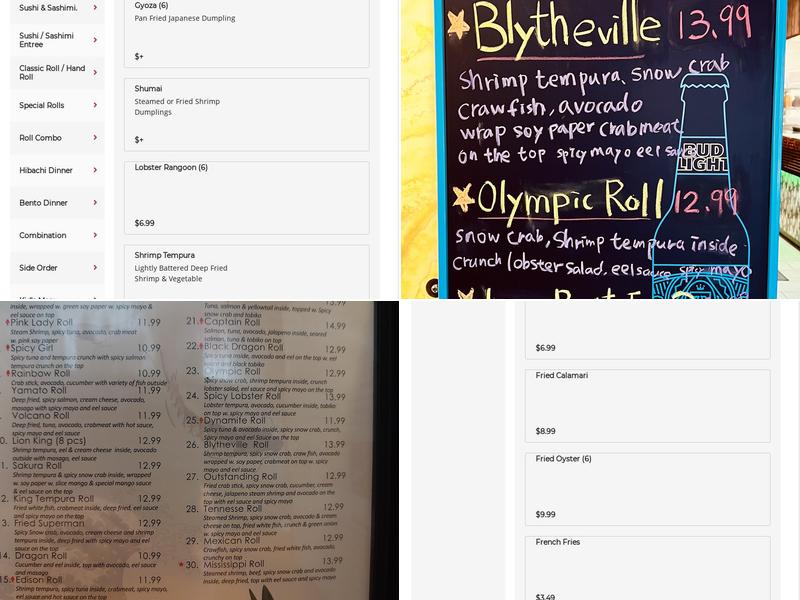 Sushi & Sashimi.
Sushi / Sashimi
Entree
Classic Roll / Hand
Roll
Special Rolls
Roll Combo
Hibachi Dinner
Bento Dinner
Combination
Side Order
Gyoza (6)
Pan Fried Japanese Dumpling
$+
Shumai
Steamed or Fried Shrimp
Dumplings
$+
Lobster Rangoon (6)
$6.99
Shrimp Tempura
Lightly Battered Deep Fried
Shrimp & Vegetable
Blytheville 13.99
Shrimp tempura. snow crab
crawfish, avocado
wrap soy paper crabmeat
on the top spicy mayo eel sauce
BUD
LIGHT
Olympic Roll 12.99
snow crab, Shrimp tempura inside.
crunch lobster salad, eel sauce spicy mayo
inside, wrapped w. green soy paper w. spicy mayo &
eel sauce on top
Pink Lady Roll 11.99
Steam Shrimp, spicy tuna, avocado, crab meat
w. pink soy paper
Spicy Girl 10.99
Spicy tuna and tempura crunch with spicy salmon
tempura crunch on the top
Rainbow Roll 10.99
Crab stick, avocado, cucumber with variety of fish outside
Yamato Roll 11.99
Deep fried, spicy salmon, cream cheese, avocado,
masago with spicy mayo and eel sauce
Volcano Roll 11.99
Deep fried, tuna, avocado, crabmeat with hot sauce,
spicy mayo and eel sauce
0. Lion King (8 pcs) 12.99
Shrimp tempura, eel & cream cheese inside, avocado
outside with masago, eel sauce
1. Sakura Roll 12.99
Shrimp tempura & spicy snow crab inside, wrapped
w. soy paper w. slice mango & special mango sauce
& eel sauce on top
2. King Tempura Roll 12.99
Fried white fish, crabmeat inside, deep fried, eel sauce
and spicy mayo
3. Fried Superman 12.99
Spicy Snow crab, avocado, cream cheese and shrimp
tempura inside, deep fried with spicy mayo and eel
sauce on the top
14. Dragon Roll 10.99
Cucumber and eel inside, top with avocado, eel sauce
and masago
15. Edison Roll 11.99
Shrimp tempura, spicy tuna inside, crabmeat, spicy mayo,
eel sauce and hot sauce on the top
13.99
Tuna, salmon & yellowtail inside, topped w. Spicy
snow crab and tobiko
21. Captain Roll 14.99
Salmon, tuna, avocado, jalapeno inside, seared
salmon, tuna & tobiko on top
22. Black Dragon Roll 12.99
Spicy tuna inside, avocado and eel on the top w. eel
sauce and black tobiko
23. Olympic Roll 12.99
Spicy snow crab, shrimp tempura inside, crunch
lobster salad, eel sauce and spicy mayo on the top
24. Spicy Lobster Roll 13.99
Lobster tempura, avocado, cucumber inside, tobiko
on top w. spicy mayo and eel sauce
25. Dynamite Roll 11.99
Spicy tuna & avocado inside, spicy snow crab, crunch,
Spicy mayo and eel Sauce on the top
26. Blytheville Roll 13.99
Shrimp tempura, spicy snow crab, craw fish, avocado
wrapped w. soy paper, crabmeat on top w. spicy
mayo and eel sauce
27. Outstanding Roll 12.99
Fried crab stick, spicy snow crab, cucumber, cream
cheese, jalapeno steam shrimp and avocado on the
top with eel sauce and spicy mayo
28. Tennesse Roll 12.99
Steamed Shrimp, spicy snow crab, avocado & cream
cheese on top, fried white fish, crunch & green onion
w. spicy mayo and eel sauce
29. Mexican Roll 12.99
Crawfish, spicy snow crab, fried white fish, avocado,
crunchy on top
30. Mississippi Roll 13.99
Steamed shrimp, beef, spicy snow crab and avocado
inside, deep fried, top with eel sauce and spicy mayo
$6.99
Fried Calamari
$8.99
Fried Oyster (6)
$9.99
French Fries
$3.49